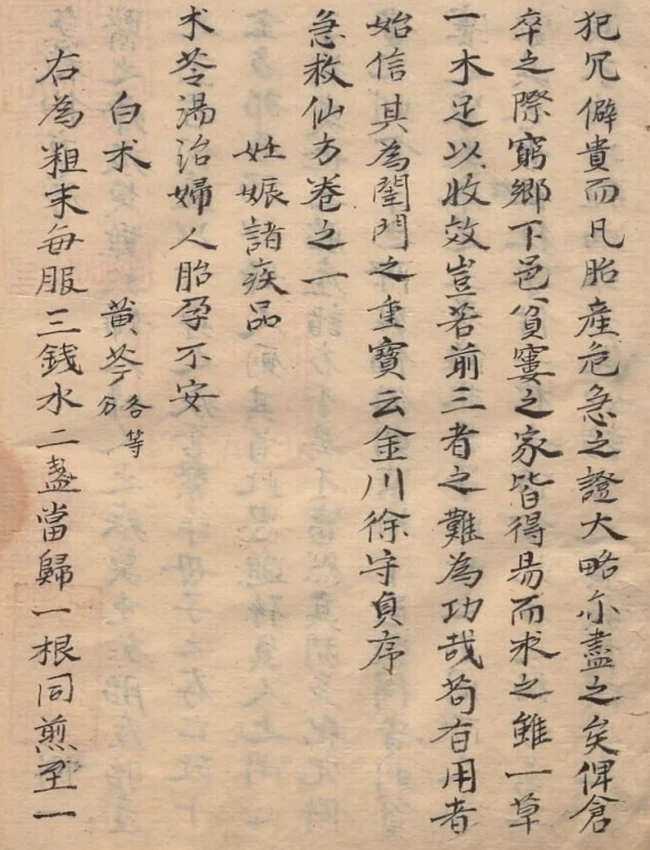 犯冗僻貴而凡胎產危急之證大略亦盡之矣俾倉
卒之際窮鄉下邑貧窶之家皆得易而求之雖一草
一木足以收效豈若前三者之難為功哉苟有用者
始信其為閨門之重寶云金川徐守貞序
急救仙方卷之一
妊娠諸疾品
术芩湯治婦人胎孕不安
白术 黃芩各等分
右為粗末每服三錢水二盞當歸一根同煎至一